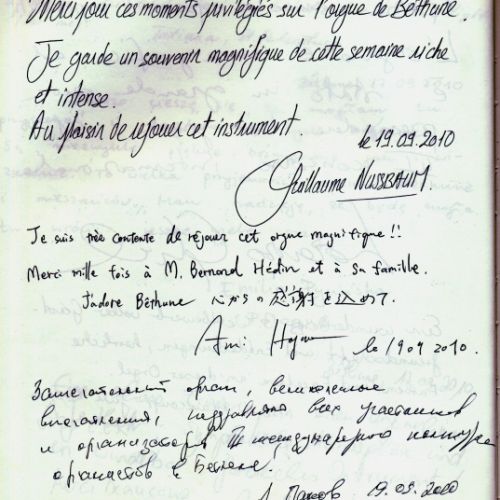 Merci pour ces moments privilégiés sur l'orgue de Béthune.
Je garde un souvenir magnifique de cette semaine riche
et intense.
Au plaisir de rejouer cet instrument.
le 19.09.2010
Guillaume NUSSBAUM.
Je suis très contente de réjouer cet orgue magnifique!!
Merci mille fois à M. Bernard Hédin et à sa famille.
J'adore Béthune 心からの感謝を込めて.
Ami
le 1909 2010.
Замечательный орган, великолепные
впечатления, поздравляю всех участников
и организаторов международного конкурса
органистов в Бетюне!
19.09.2010